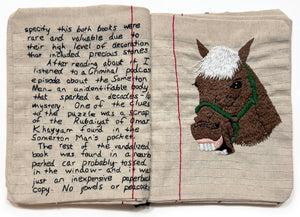 specify this both books were
rare and valuable due to
their high level of decoration
that included precious stones.
After reading about it I
listened to a Criminal podcast
episode about the Somerton
Man - an unidentifiable body
that sparked a decades-
mystery. One of the clues
to the puzzle was a scrap
of the Rubaiyat of Omar
Khayyam found in the
Somerton Man's pocket.
The rest of the vandalized
book was found in a nearby
parked car probably tossed
in the window - and it was
just an inexpensive paperback
copy. No jewels or peacocks